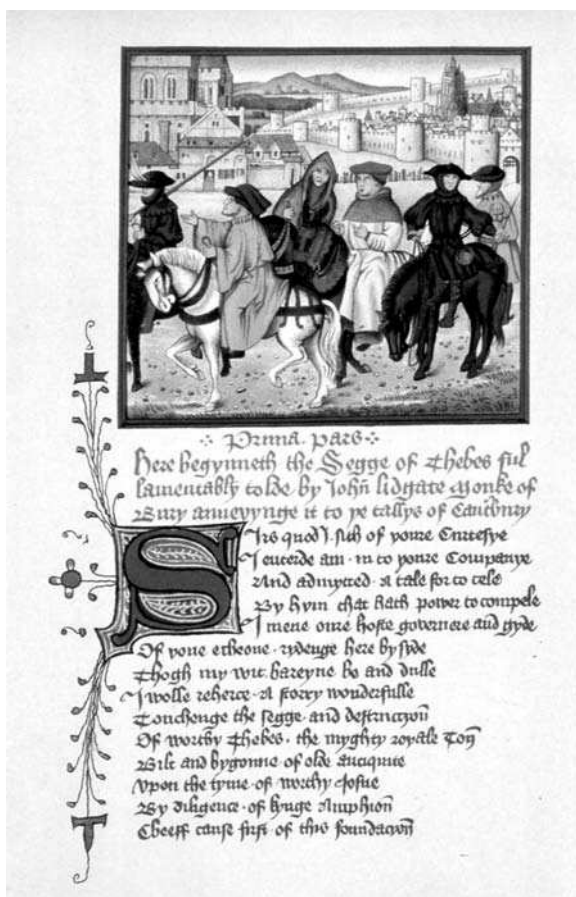 Prima. pars
Here begynneth the Segge of Thebes ful
lamentably tolde by John lidgate Monke of
Bury annevynge it to þe tallys of Cantbury
Sirs quod I. sith of youre Curtesye
I enterde am. in to youre Companye
And admytted. a tale for to tele
By hym that hath power to compele
I mene oure hoste governere and gyde
Of youe echeone. rydenge here by syde
Thogh my wit. bareyne be and dulle
I wolle reherce. a story wonderfulle
Touchenge the segge. and destructyon
Of worthy Thebes. the myghty royale Ton
Bilt and bygonne of olde antiquite
Vpon the tyme of worthy Josue
By diligence. of kynge Amphion
Cheeff cause first of this foundacyon